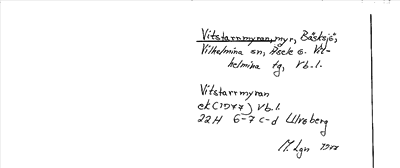 Vitstarrmyran, myr, Bäsksjö,
Vilhelmina sn, Åsele o. Vil-
helmina tg, Vb. l.
Vitstarrmyran
ek (1977) Vb. l.
22H 6-7 c-d Ulvoberg
M. Lgn 1977